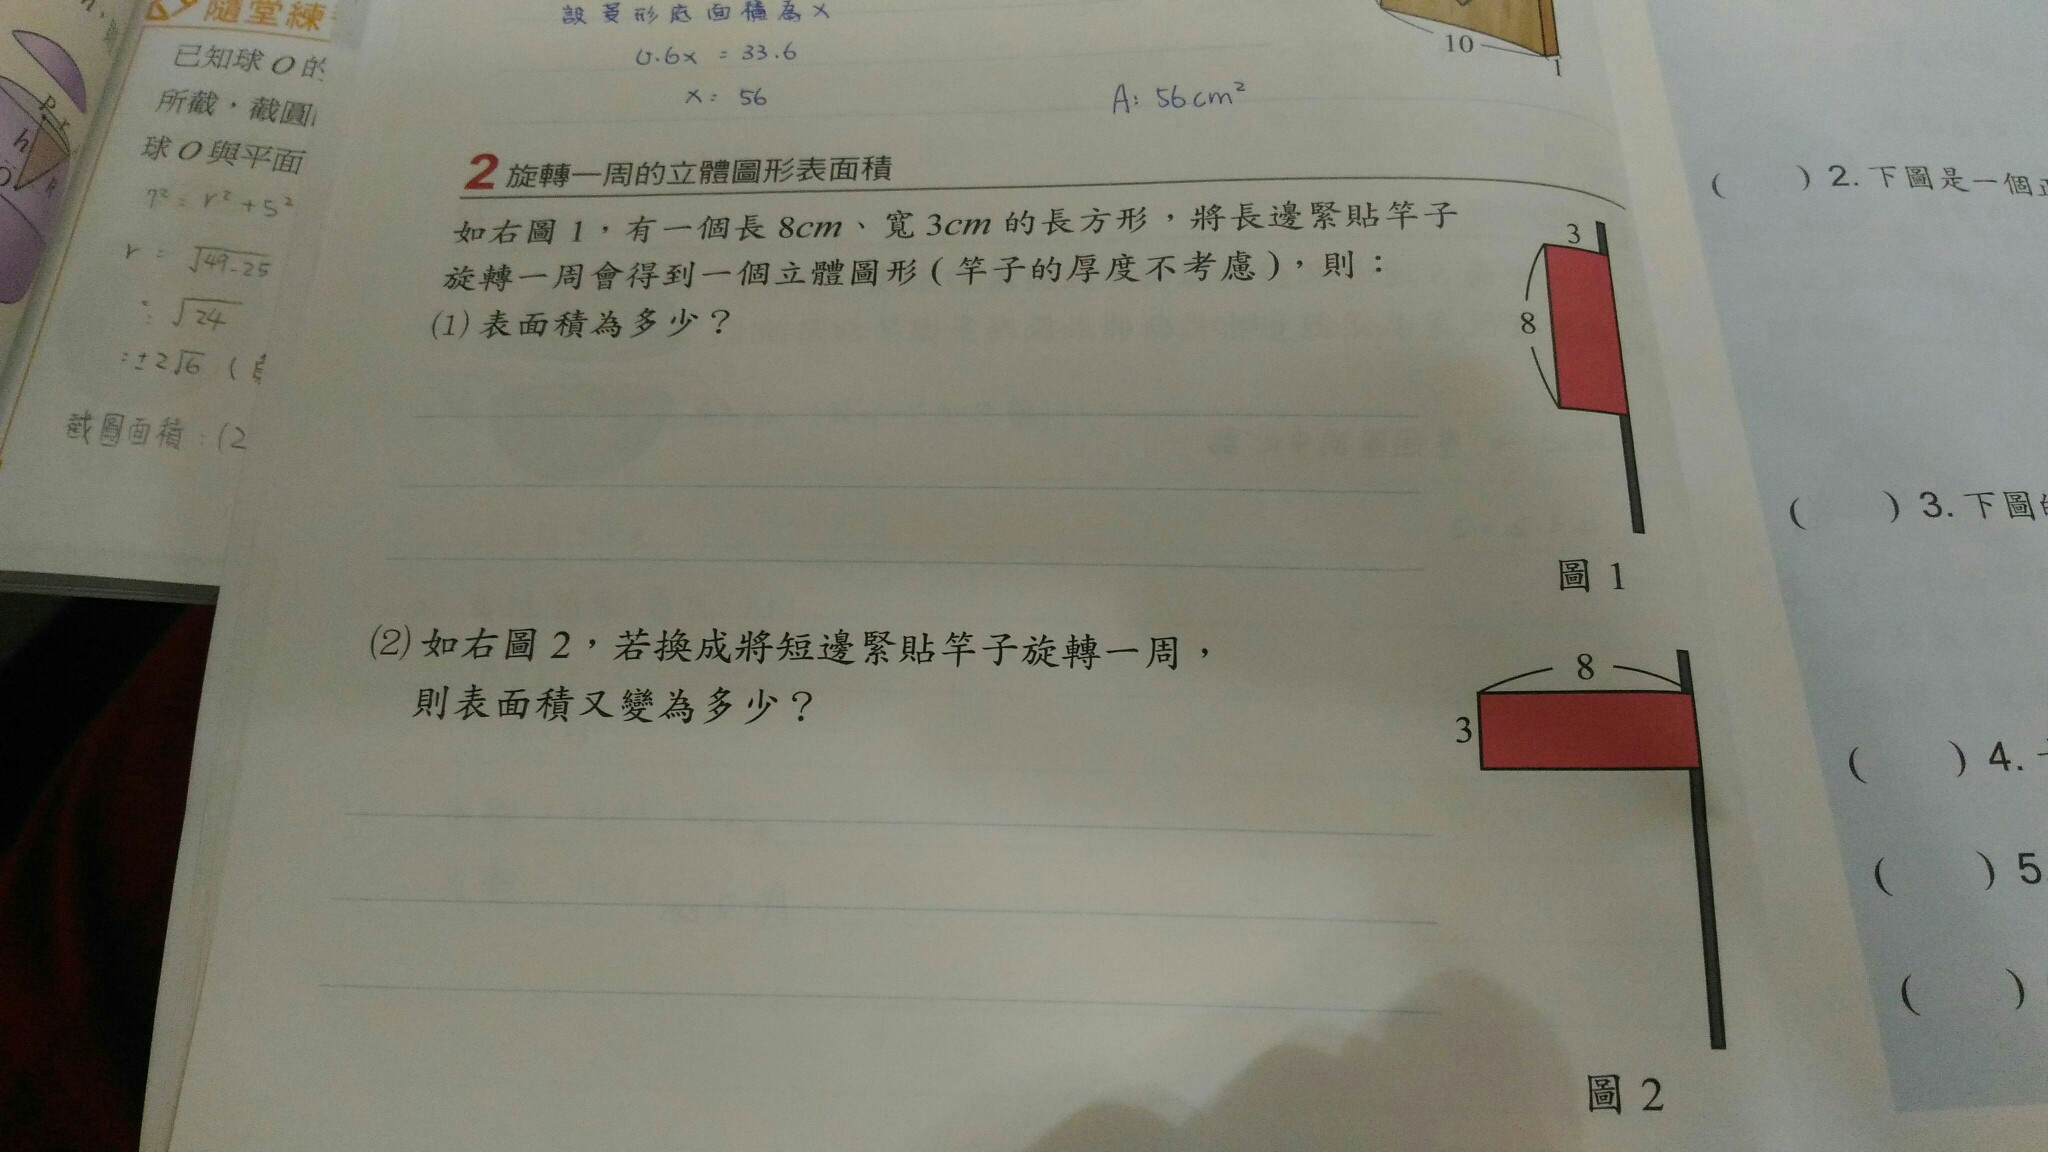 隨堂練
已知球 O 的
所截,截圓
球 O 與平面
7² = r² + 5²
r = √49-25
= √24
= ±2√6 (
截圓面積:(2
P
r
h
設菱形底面積為 x
0.6x = 33.6
x = 56
A: 56cm²
10
1
2 旋轉一周的立體圖形表面積
如右圖 1,有一個長 8cm、寬 3cm 的長方形,將長邊緊貼竿子
旋轉一周會得到一個立體圖形(竿子的厚度不考慮),則:
(1) 表面積為多少?
3
8
圖 1
(2) 如右圖 2,若換成將短邊緊貼竿子旋轉一周,
則表面積又變為多少?
8
3
圖 2
( ) 2. 下圖是一個正
( ) 3. 下圖的
( ) 4.
( ) 5.
( )